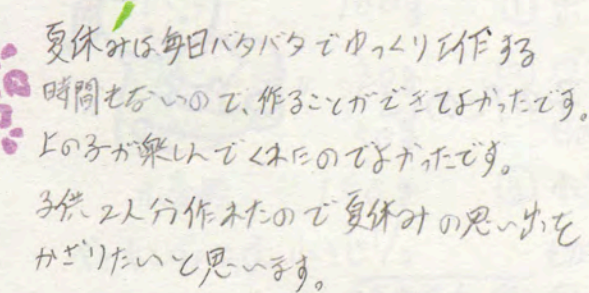 夏休みは毎日バタバタでゆっくり工作する
時間もないので、作ることができてよかったです。
上の子が楽しんでくれたのでよかったです。
子供2人分作れたので夏休みの思い出を
かざりたいと思います。